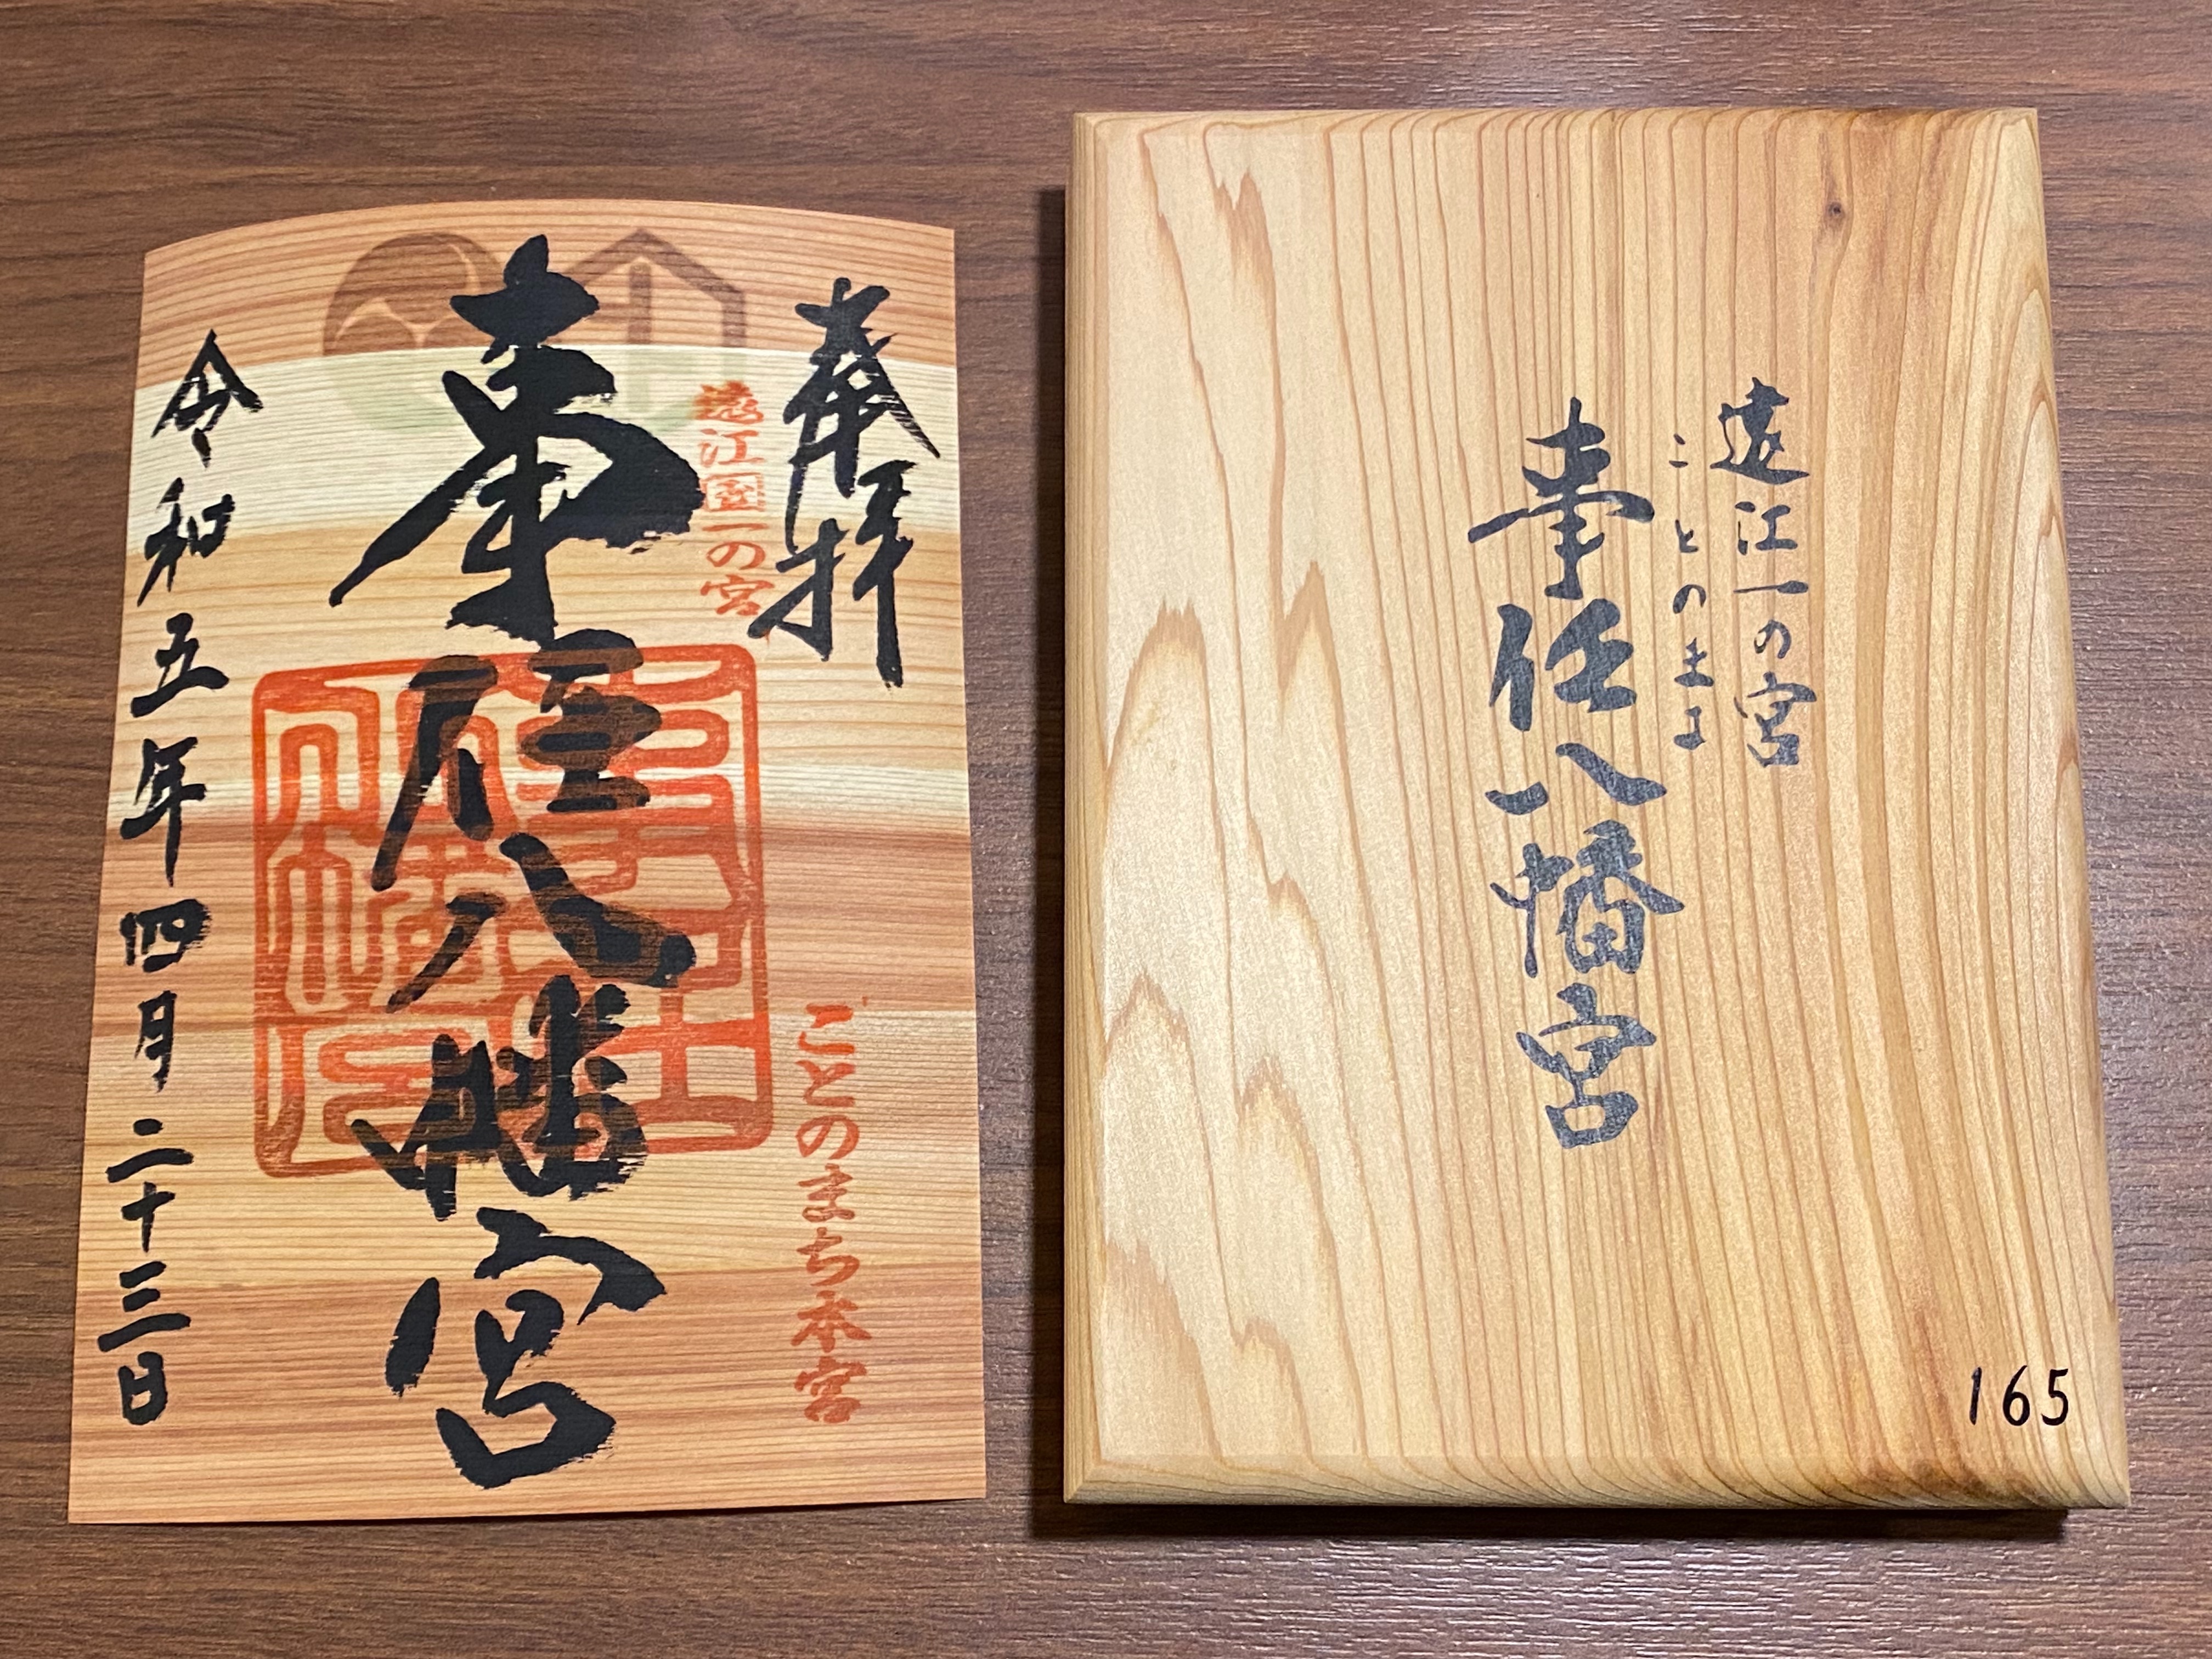 奉拝
遠江國一の宮
ことのまち本宮
事任八幡宮
令和五年四月二十三日
遠江一の宮
ことのまま
事任八幡宮
165